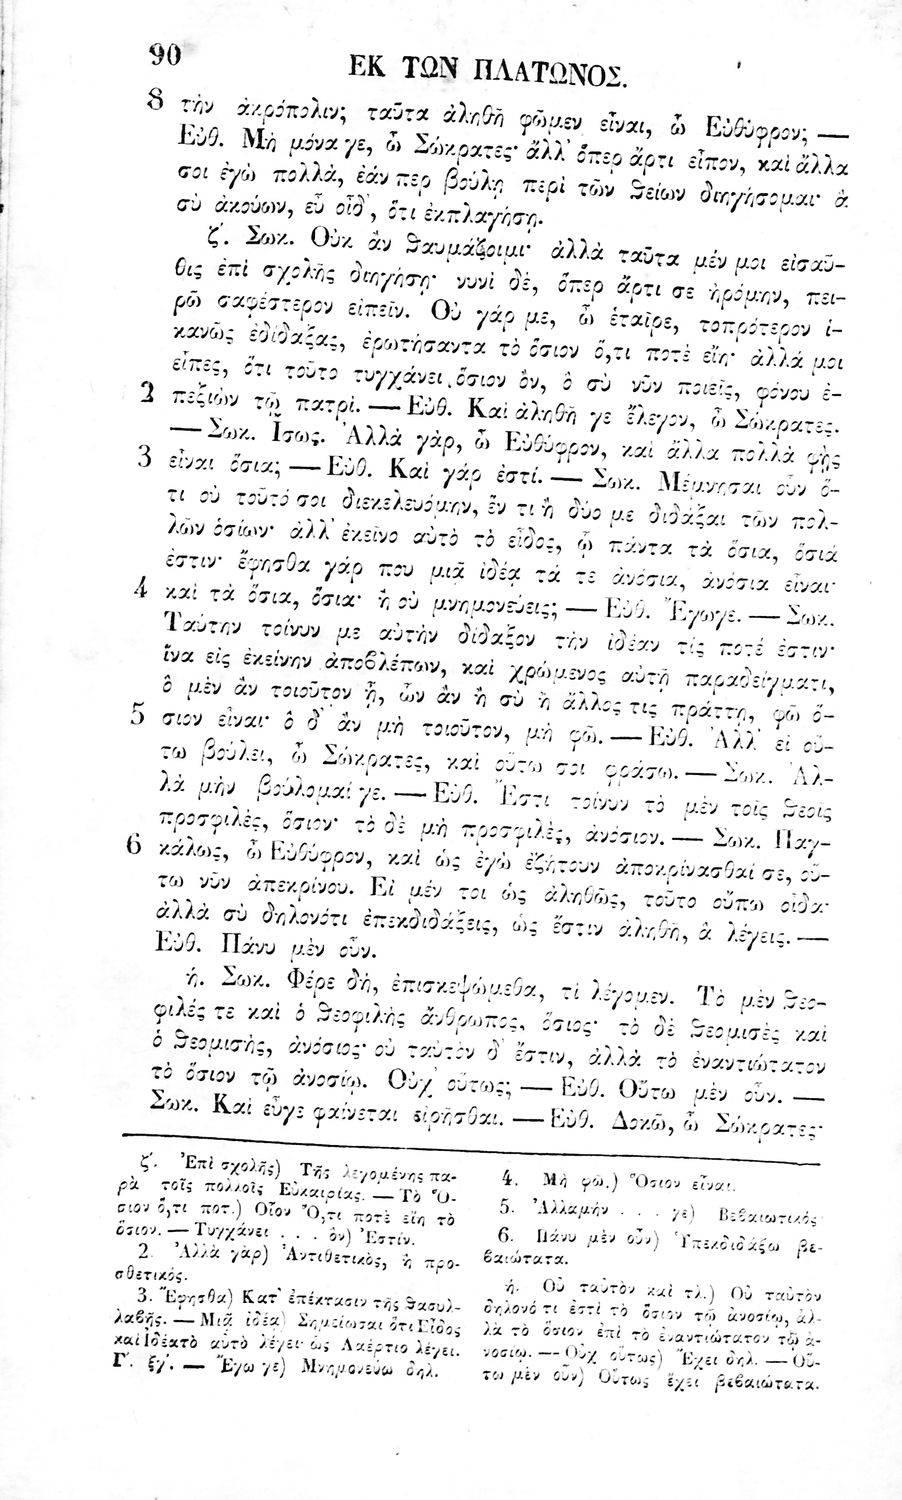 90
ΕΚ ΤΩΝ ΠΛΑΤΩΝΟΣ.
8 τὴν ἀκρόπολιν; ταῦτα ἀληθῆ φῶμεν εἶναι, ὦ Εὐθύφρον; —
Εὐθ. Μὴ μόνα γε, ὦ Σώκρατες· ἀλλ' ὅπερ ἄρτι εἶπον, καὶ ἄλλα
σοι ἐγὼ πολλὰ, ἐάν περ βούλῃ περὶ τῶν θείων διηγήσομαι· ἃ
σὺ ἀκούων, εὖ οἶδ', ὅτι ἐκπλαγήσῃ.
ζ'. Σωκ. Οὐκ ἂν θαυμάζοιμι· ἀλλὰ ταῦτα μέν μοι εἰσαῦ-
θις ἐπὶ σχολῆς διηγήσῃ· νυνὶ δὲ, ὅπερ ἄρτι σε ἠρόμην, πει-
ρῶ σαφέστερον εἰπεῖν. Οὐ γάρ με, ὦ ἑταῖρε, τοπρότερον ἱ-
κανῶς ἐδίδαξας, ἐρωτήσαντα τὸ ὅσιον ὅ,τι ποτὲ εἴη· ἀλλά μοι
εἶπες, ὅτι τοῦτο τυγχάνει ὅσιον ὂν, ὃ σὺ νῦν ποιεῖς, φόνου ἐ-
2 πεξιὼν τῷ πατρί. — Εὐθ. Καὶ ἀληθῆ γε ἔλεγον, ὦ Σώκρατες.
— Σωκ. Ἴσως. Ἀλλὰ γὰρ, ὦ Εὐθύφρον, καὶ ἄλλα πολλὰ φῂς
3 εἶναι ὅσια; — Εὐθ. Καὶ γάρ ἐστί. — Σωκ. Μέμνησαι οὖν ὅ-
τι οὐ τοῦτό σοι διεκελευόμην, ἕν τι ἢ δύο με διδάξαι τῶν πολ-
λῶν ὁσίων· ἀλλ' ἐκεῖνο αὐτὸ τὸ εἶδος, ᾧ πάντα τὰ ὅσια, ὅσιά
ἐστιν· ἔφησθα γάρ που μιᾷ ἰδέᾳ τά τε ἀνόσια, ἀνόσια εἶναι·
4 καὶ τὰ ὅσια, ὅσια· ἢ οὐ μνημονεύεις; — Εὐθ. Ἔγωγε. — Σωκ.
Ταύτην τοίνυν με αὐτὴν δίδαξον τὴν ἰδέαν τίς ποτέ ἐστιν·
ἵνα εἰς ἐκείνην ἀποβλέπων, καὶ χρώμενος αὐτῇ παραδείγματι,
ὃ μὲν ἂν τοιοῦτον ᾖ, ὧν ἂν ἢ σὺ ἢ ἄλλος τις πράττῃ, φῶ ὅ-
5 σιον εἶναι· ὃ δ' ἂν μὴ τοιοῦτον, μὴ φῶ. — Εὐθ. Ἀλλ' εἰ οὕ-
τω βούλει, ὦ Σώκρατες, καὶ οὕτω σοι φράσω. — Σωκ. Ἀλ-
λὰ μὴν βούλομαί γε. — Εὐθ. Ἔστι τοίνυν τὸ μὲν τοῖς θεοῖς
προσφιλές, ὅσιον· τὸ δὲ μὴ προσφιλὲς, ἀνόσιον. — Σωκ. Παγ-
6 κάλως, ὦ Εὐθύφρον, καὶ ὡς ἐγὼ ἐζήτουν ἀποκρίνασθαί σε, οὕ-
τω νῦν ἀπεκρίνου. Εἰ μέν τοι ὡς ἀληθῶς, τοῦτο οὔπω οἶδα·
ἀλλὰ σὺ δηλονότι ἐπεκδιδάξεις, ὡς ἔστιν ἀληθῆ, ἃ λέγεις. —
Εὐθ. Πάνυ μὲν οὖν.
ή. Σωκ. Φέρε δὴ, ἐπισκεψώμεθα, τί λέγομεν. Τὸ μὲν θεο-
φιλές τε καὶ ὁ θεοφιλὴς ἄνθρωπος, ὅσιος· τὸ δὲ θεομισὲς καὶ
ὁ θεομισὴς, ἀνόσιος· οὐ ταὐτὸν δ' ἔστιν, ἀλλὰ τὸ ἐναντιώτατον
τὸ ὅσιον τῷ ἀνοσίῳ. Οὐχ' οὕτως; — Εὐθ. Οὕτω μὲν οὖν. —
Σωκ. Καὶ εὖγε φαίνεται εἰρῆσθαι. — Εὐθ. Δοκῶ, ὦ Σώκρατες·
ζ'. Ἐπὶ σχολῆς) Τῆς λεγομένης πα-
ρὰ τοῖς πολλοῖς Εὐκαιρίας. — Τὸ Ὅ-
σιον ὅ,τι ποτ.) Οἷον Ὅ,τι ποτὲ εἴη τὸ
ὅσιον. — Τυγχάνει . . . ὂν) Ἔστίν.
2. Ἀλλὰ γὰρ) Ἀντιθετικὸς, ἢ προ-
σθετικός.
3. Ἔφησθα) Κατ' ἐπέκτασιν τῆς θασυλ-
λαβῆς. — Μιᾷ ἰδέᾳ) Σημείωσαι ὅτι Εἶδος
καὶ Ἰδέα τὸ αὐτὸ λέγει· ὡς Λαέρτιο λέγει.
Γ'. ξγ'. — Ἔγω γε) Μνημονεύω δηλ.
4. Μὴ φῶ.) Ὅσιον εἶναι.
5. Ἀλλαμὴν . . . γε) Βεβαιωτικός
6. Πάνυ μὲν οὖν) Ὑπεκδιδάξω βε-
βαιώτατα.
ή. Οὐ ταὐτὸν καὶ τλ.) Οὐ ταὐτὸν
δηλονό τι ἐστὶ τὸ ὅσιον τῷ ἀνοσίῳ, ἀλ-
λὰ τὸ ὅσιον ἐπὶ τὸ ἐναντιώτατον τῷ ἀ-
νοσίῳ. — Οὐχ οὕτως) Ἔχει δηλ. — Οὕ-
τω μὲν οὖν) Οὕτως ἔχει βεβαιώτατα.